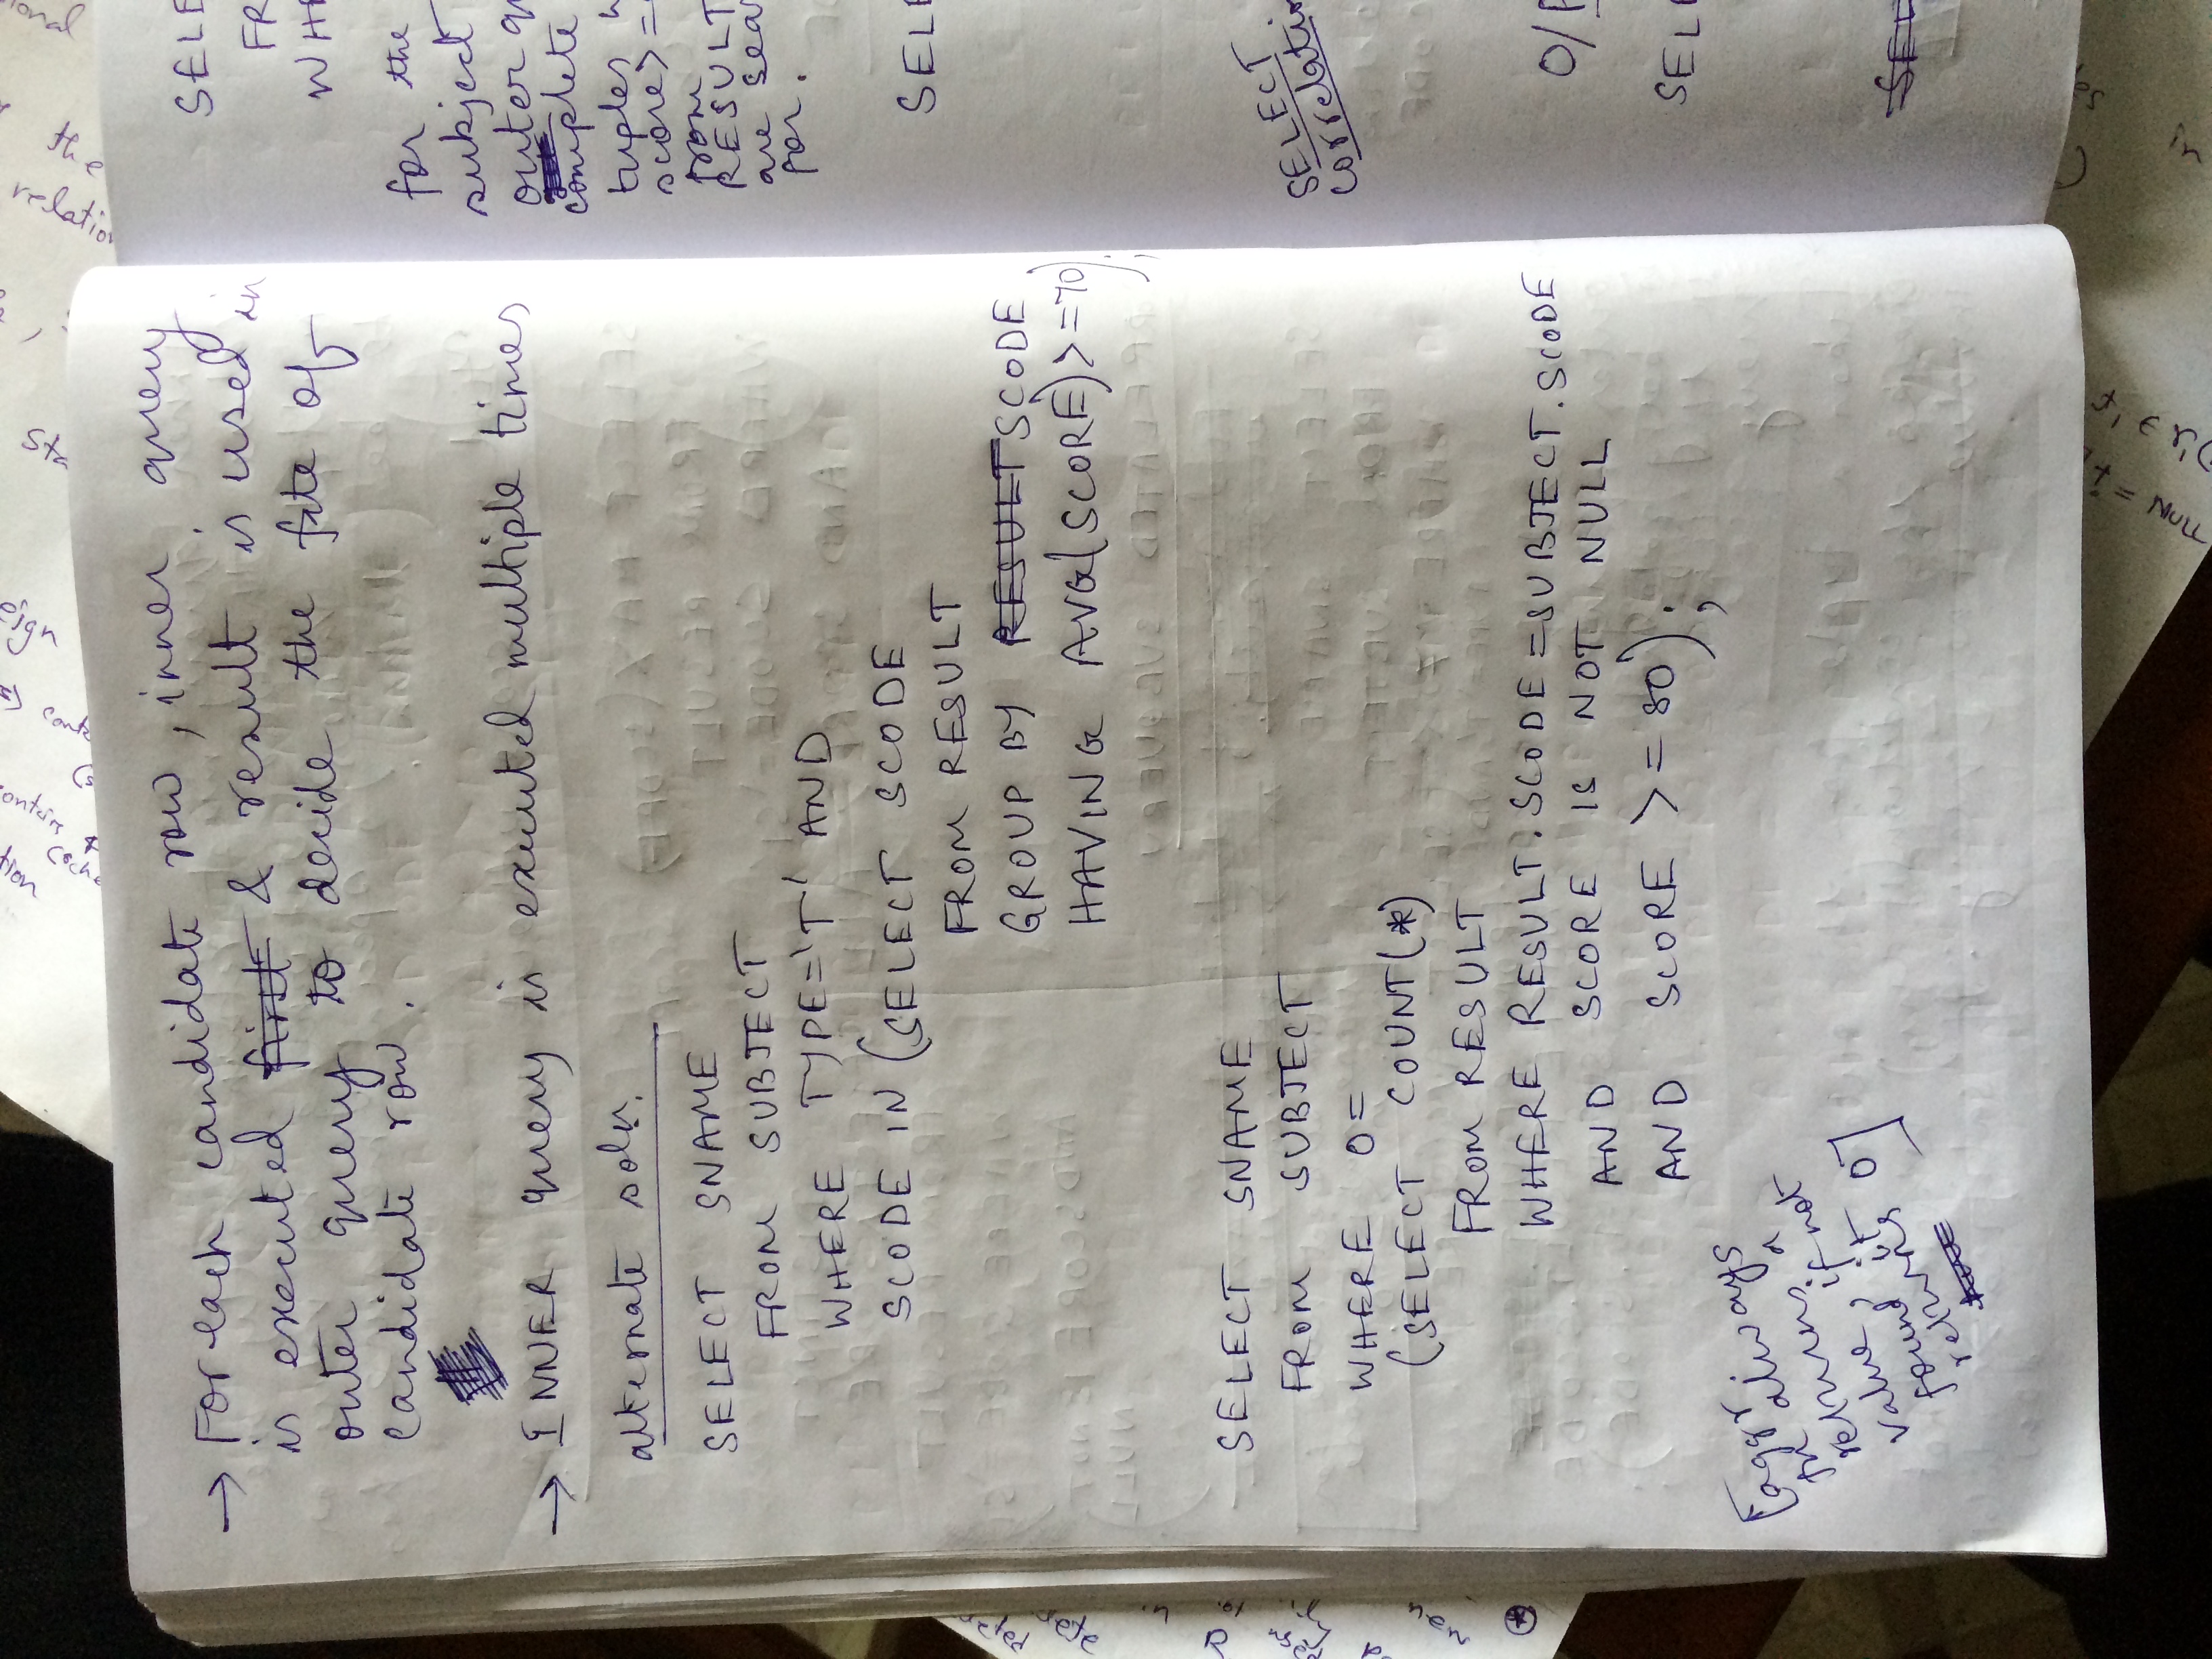 → For each candidate row, inner query
is executed first & result is used in
outer query to decide the fate of
candidate row.
→ INNER query is executed multiple times
alternate soln.
SELECT SNAME
FROM SUBJECT
WHERE TYPE='T' AND
SCODE IN (SELECT SCODE
FROM RESULT
GROUP BY RESULT SCODE
HAVING AVG(SCORE)>=70);
SELECT SNAME
FROM SUBJECT
WHERE 0=
(SELECT COUNT(*)
FROM RESULT
WHERE RESULT.SCODE=SUBJECT.SCODE
AND SCORE IS NOT NULL
AND SCORE >=80);
[aggr
fn always
returns a
value, if not
found it
returns 0]
SELE
FR
WH
for the
subject
outer q
complete
tuples w
score>=
from
RESULT
are sea
for.
SELE
SELECT
correlatio
O/P
SELE
SEL